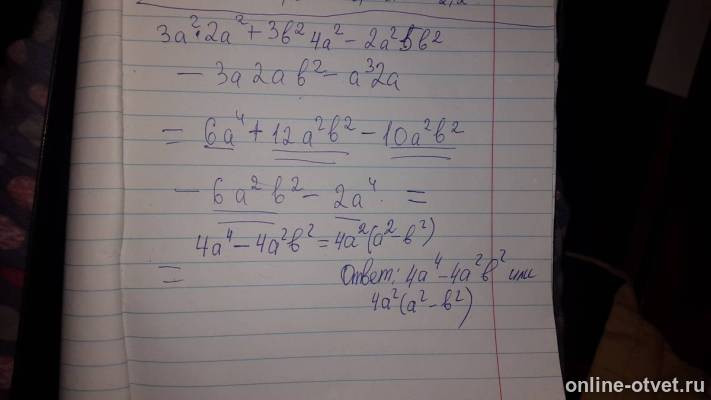 3a²·2a² + 3b² 4a² − 2a² 5b²
− 3a 2a b² − a³ 2a
= 6a⁴ + 12a²b² − 10a²b²
− 6a² b² − 2a⁴ =
4a⁴ − 4a²b² = 4a²(a² − b²)
=
Ответ: 4a⁴ − 4a²b² или
4a²(a² − b²)
online-otvet.ru